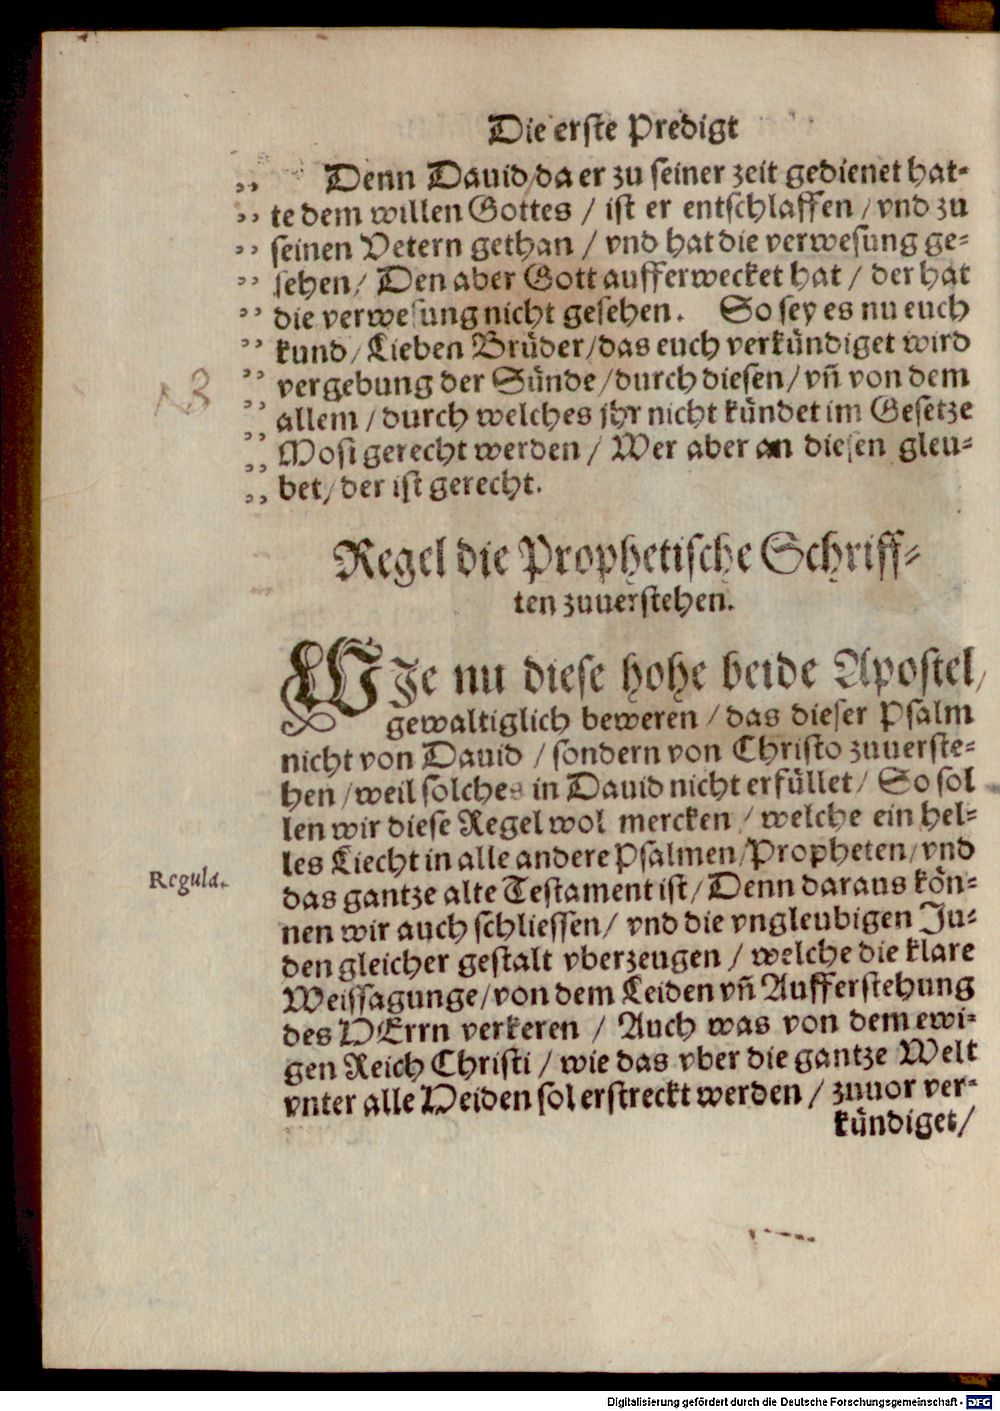 Die erste Predigt
„ Denn Dauid/da er zu seiner zeit gedienet hat-
„ te dem willen Gottes / ist er entschlaffen / vnd zu
„ seinen Vetern gethan / vnd hat die verwesung ge-
„ sehen / Den aber Gott aufferwecket hat / der hat
„ die verwesung nicht gesehen. So sey es nu euch
„ kund / Lieben Brüder / das euch verkündiget wird
„ vergebung der Sünde / durch diesen / vñ von dem
„ allem / durch welches jhr nicht kündet im Gesetze
„ Mosi gerecht werden / Wer aber an diesen gleu-
„ bet / der ist gerecht.
NB
Regel die Prophetische Schriff-
ten zuuerstehen.
WJe nu diese hohe beide Apostel /
gewaltiglich beweren / das dieser Psalm
nicht von Dauid / sondern von Christo zuuerste-
hen / weil solches in Dauid nicht erfüllet / So sol
len wir diese Regel wol mercken / welche ein hel-
les Liecht in alle andere Psalmen / Propheten / vnd
Regula.
das gantze alte Testament ist / Denn daraus kön-
nen wir auch schliessen / vnd die vngleubigen Jü-
den gleicher gestalt vberzeugen / welche die klare
Weissagunge / von dem Leiden vñ Aufferstehung
des HErrn verkeren / Auch was von dem ewi-
gen Reich Christi / wie das vber die gantze Welt
vnter alle Heiden sol erstreckt werden / zuuor ver-
kündiget /
Digitalisierung gefördert durch die Deutsche Forschungsgemeinschaft - DFG